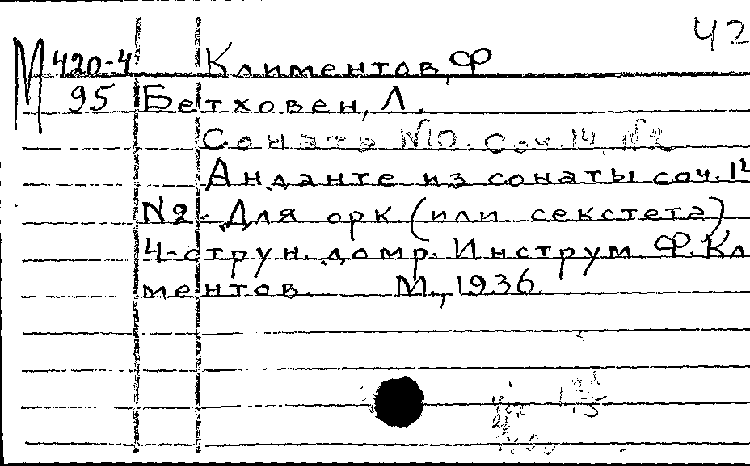 42
М 420-4 Климентов, Ф
95 Бетховен, Л.
Соната №10. Соч. 14, №2
Анданте из сонаты соч. 1
№2. Для орк (или секстета)
4-струн. домр. Инструм Ф. Кл
ментов. М., 1936